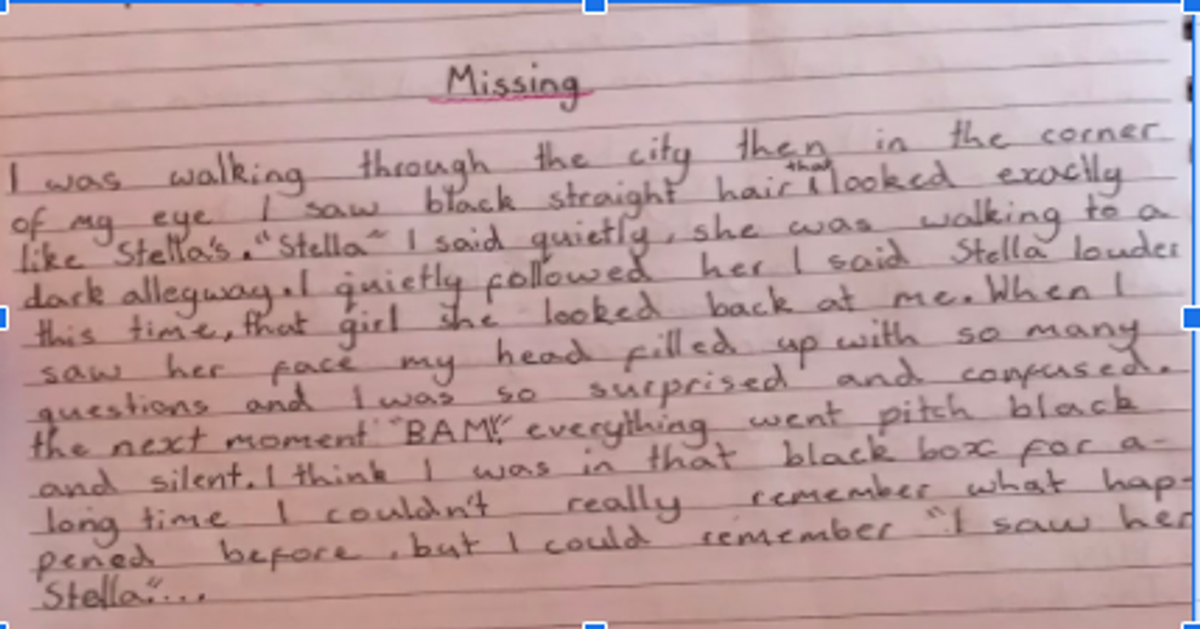 Missing
I was walking through the city then in the corner
of my eye I saw black straight hair that looked exactly
like Stella's. "Stella" I said quietly, she was walking to a
dark allegway. I quietly followed her I said Stella louder
this time, that girl she looked back at me. When I
saw her face my head filled up with so many
questions and I was so surprised and confused.
the next moment "BAM!" everything went pitch black
and silent. I think I was in that black box for a-
long time I couldn't really remember what hap-
pened before, but I could remember "I saw her
Stella"...